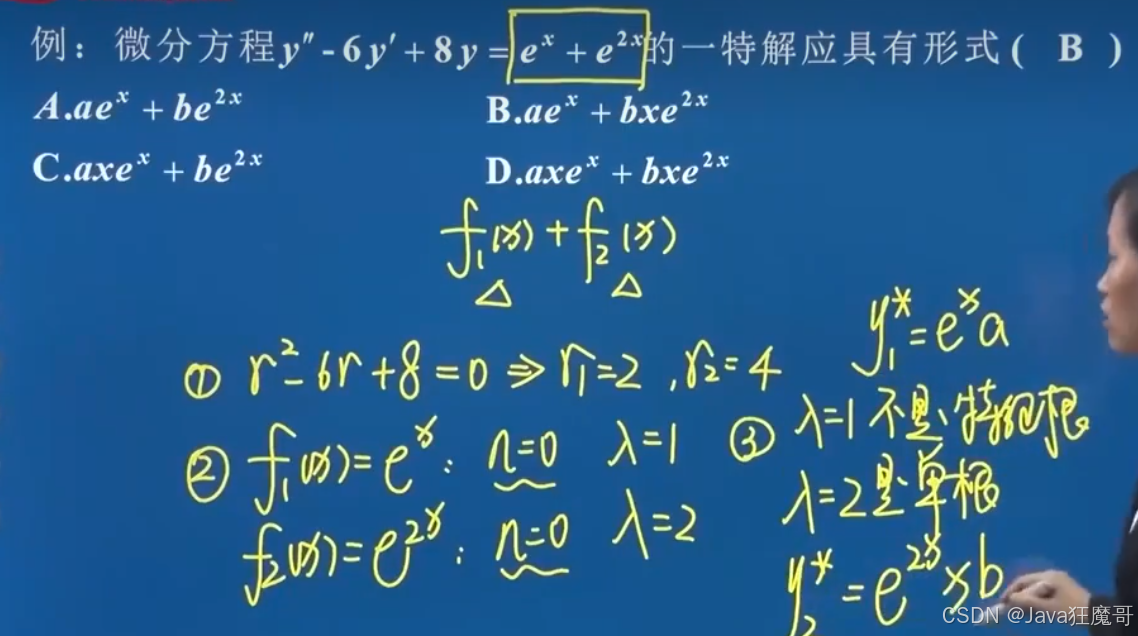 例：微分方程y″-6y′+8y=eˣ+e²ˣ的一特解应具有形式( B )
A.aeˣ+be²ˣ B.aeˣ+bxe²ˣ
C.axeˣ+be²ˣ D.axeˣ+bxe²ˣ
f₁(x)+f₂(x)
△ △
y₁*=eˣa
① r²-6r+8=0⇒r₁=2,r₂=4
② f₁(x)=eˣ: n=0 λ=1 ③ λ=1不是特征根
f₂(x)=e²ˣ: n=0 λ=2 λ=2是单根
y₂*=e²ˣxb
CSDN @Java狂魔哥